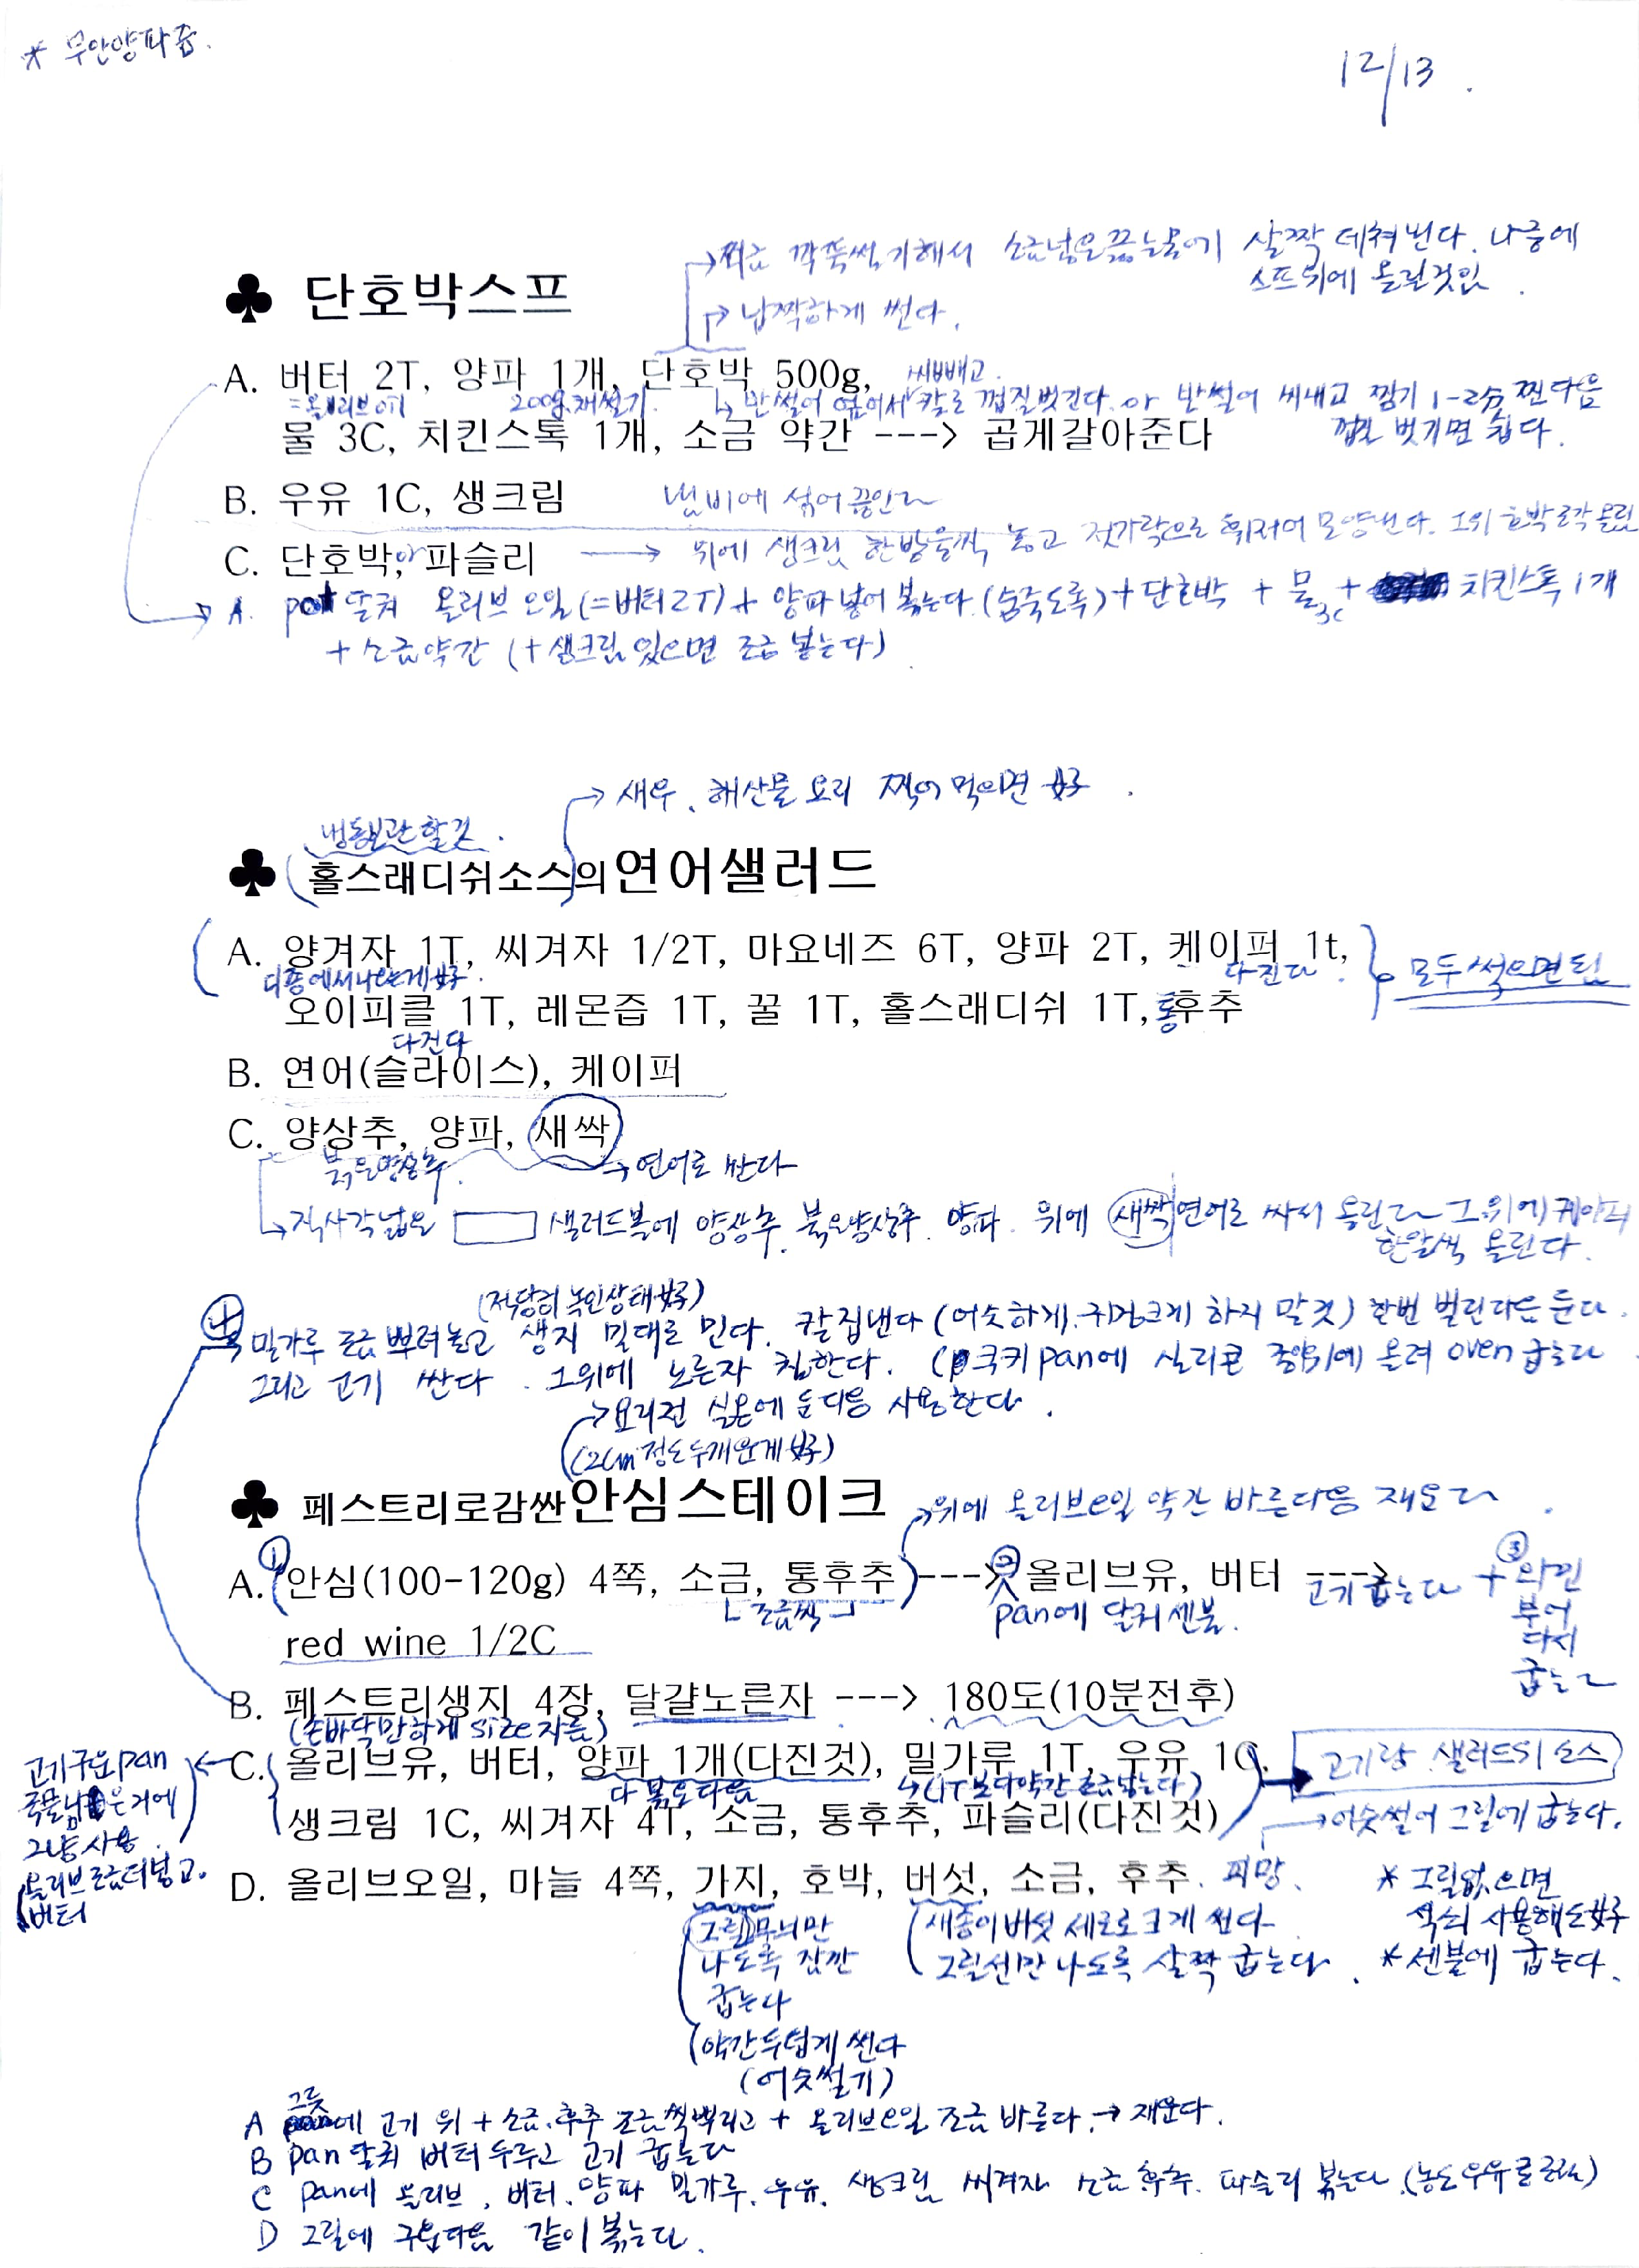 * 무안양파즙.
12/13.
→ 조금 깍뚝썰기해서 소금넣은끓는물에 살짝 데쳐낸다. 나중에
스프위에 올릴것임.
→ 납짝하게 썬다.
♣ 단호박스프
씨빼고
A. 버터 2T, 양파 1개, 단호박 500g,
=올리브OTI 200g.채썰기. ↳ 반썰어 엎어서 칼로 껍질벗긴다. or 반썰어 씨내고 찜기 1-2분 찐다음
껍질 벗기면 쉽다.
물 3C, 치킨스톡 1개, 소금 약간 ---> 곱게갈아준다
B. 우유 1C, 생크림 냄비에 섞어 끓인다
C. 단호박, 파슬리 → 위에 생크림 한방울씩 놓고 젓가락으로 휘저어 모양낸다. 그위 호박조각 올림
→ A. pot 달궈 올리브오일(=버터2T) + 양파 넣어 볶는다.(숨죽도록) + 단호박 + 물3C + 치킨스톡 1개
+ 소금약간 (+ 생크림 있으면 조금 붓는다)
→ 새우, 해산물 요리 찍어 먹으면 好.
냉동보관 할것.
♣ (홀스래디쉬소스)의 연어샐러드
A. 양겨자 1T, 씨겨자 1/2T, 마요네즈 6T, 양파 2T, 케이퍼 1t,
디종에서나온게好. 다진다. 모두 섞으면 됨
오이피클 1T, 레몬즙 1T, 꿀 1T, 홀스래디쉬 1T, 통후추
다진다
B. 연어(슬라이스), 케이퍼
C. 양상추, 양파, 새싹
붉은양상추. → 연어로 싼다
↳ 직사각넓은 샐러드볼에 양상추, 붉은양상추, 양파. 위에 새싹 연어로 싸서 올린다 그위에 케이퍼
한알씩 올린다.
(적당히 녹인상태好)
④ 밀가루 조금 뿌려놓고 생지 밀대로 민다. 칼집낸다 (어슷하게. 너무크게 하지 말것) 한번 벌린다음 둔다.
그리고 고기 싼다. 그위에 노른자 칠한다. (쿠키pan에 실리콘 종이위에 올려 oven 굽는다
→ 요리전 실온에 둔다음 사용한다.
(2cm정도두께운게 好)
♣ 페스트리로감싼안심스테이크 → 위에 올리브오일 약간 바른다음 재운다.
A. ① (안심(100-120g) 4쪽, 소금, 통후추) ---> ② 올리브유, 버터 ---> 고기 굽는다 + ③ 와인
└ 조금씩 ┘ pan에 달궈 센불. 부어
다시
굽는다
red wine 1/2C
B. 페스트리생지 4장, 달걀노른자 ---> 180도(10분전후)
(손바닥만하게 size자름)
C. 올리브유, 버터, 양파 1개(다진것), 밀가루 1T, 우유 1C,
다 볶은다음 ↳(1T보다약간 조금넣는다)
생크림 1C, 씨겨자 4T, 소금, 통후추, 파슬리(다진것)
고기구운pan
국물남은거에
그냥 사용.
올리브조금더넣고.
버터
고기랑 샐러드의 소스
→ 어슷썰어 그릴에 굽는다.
D. 올리브오일, 마늘 4쪽, 가지, 호박, 버섯, 소금, 후추. 피망.
그릴무늬만
나도록 잠깐
굽는다
(약간두껍게 썬다
(어슷썰기)
새송이버섯 세로로 크게 썬다
그릴선만 나도록 살짝 굽는다.
* 그릴없으면
석쇠 사용해도 好
* 센불에 굽는다.
그릇
A 에 고기 위 + 소금.후추 조금씩뿌리고 + 올리브오일 조금 바른다. → 재운다.
B pan 달궈 버터 두루고 고기 굽는다
C pan에 올리브, 버터, 양파 밀가루, 우유, 생크림 씨겨자 소금 후추, 파슬리 볶는다.(농도우유로조절)
D 그릴에 구운다음 같이 볶는다.